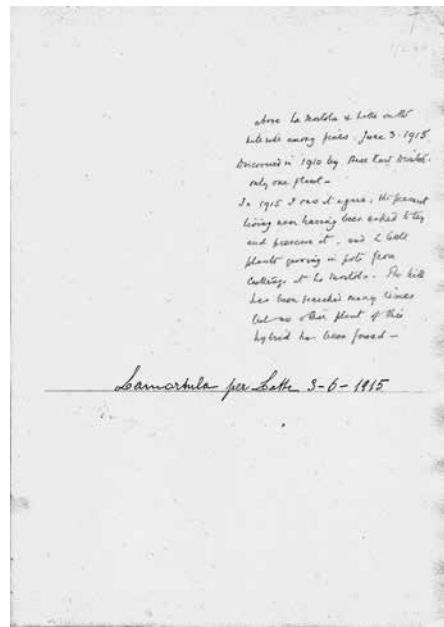 above La Mortola & Latte on the
hillside among pines. June 3. 1915.
Discovered in 1910 by
only one plant –
In 1915 I saw it again, the peasant
living near having been asked to try
and preserve it. and 2 little
plants growing in pots from
cuttings at La Mortola. The hill
has been searched many times
but no other plant of this
hybrid has been found –
Lamortula per Latte 3-6-1915